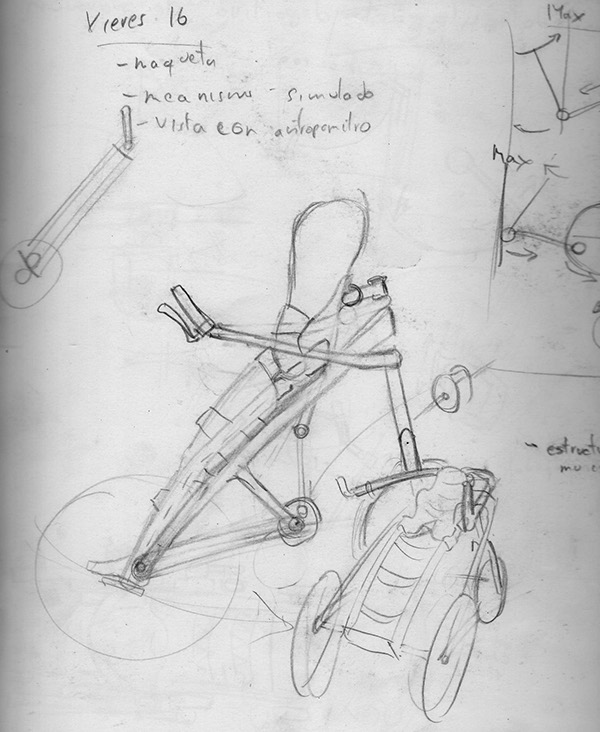 Vieres 16
- maqueta
- mcanismo - simulado
- vista con antropomitro
Max
Max
- estructu
mu